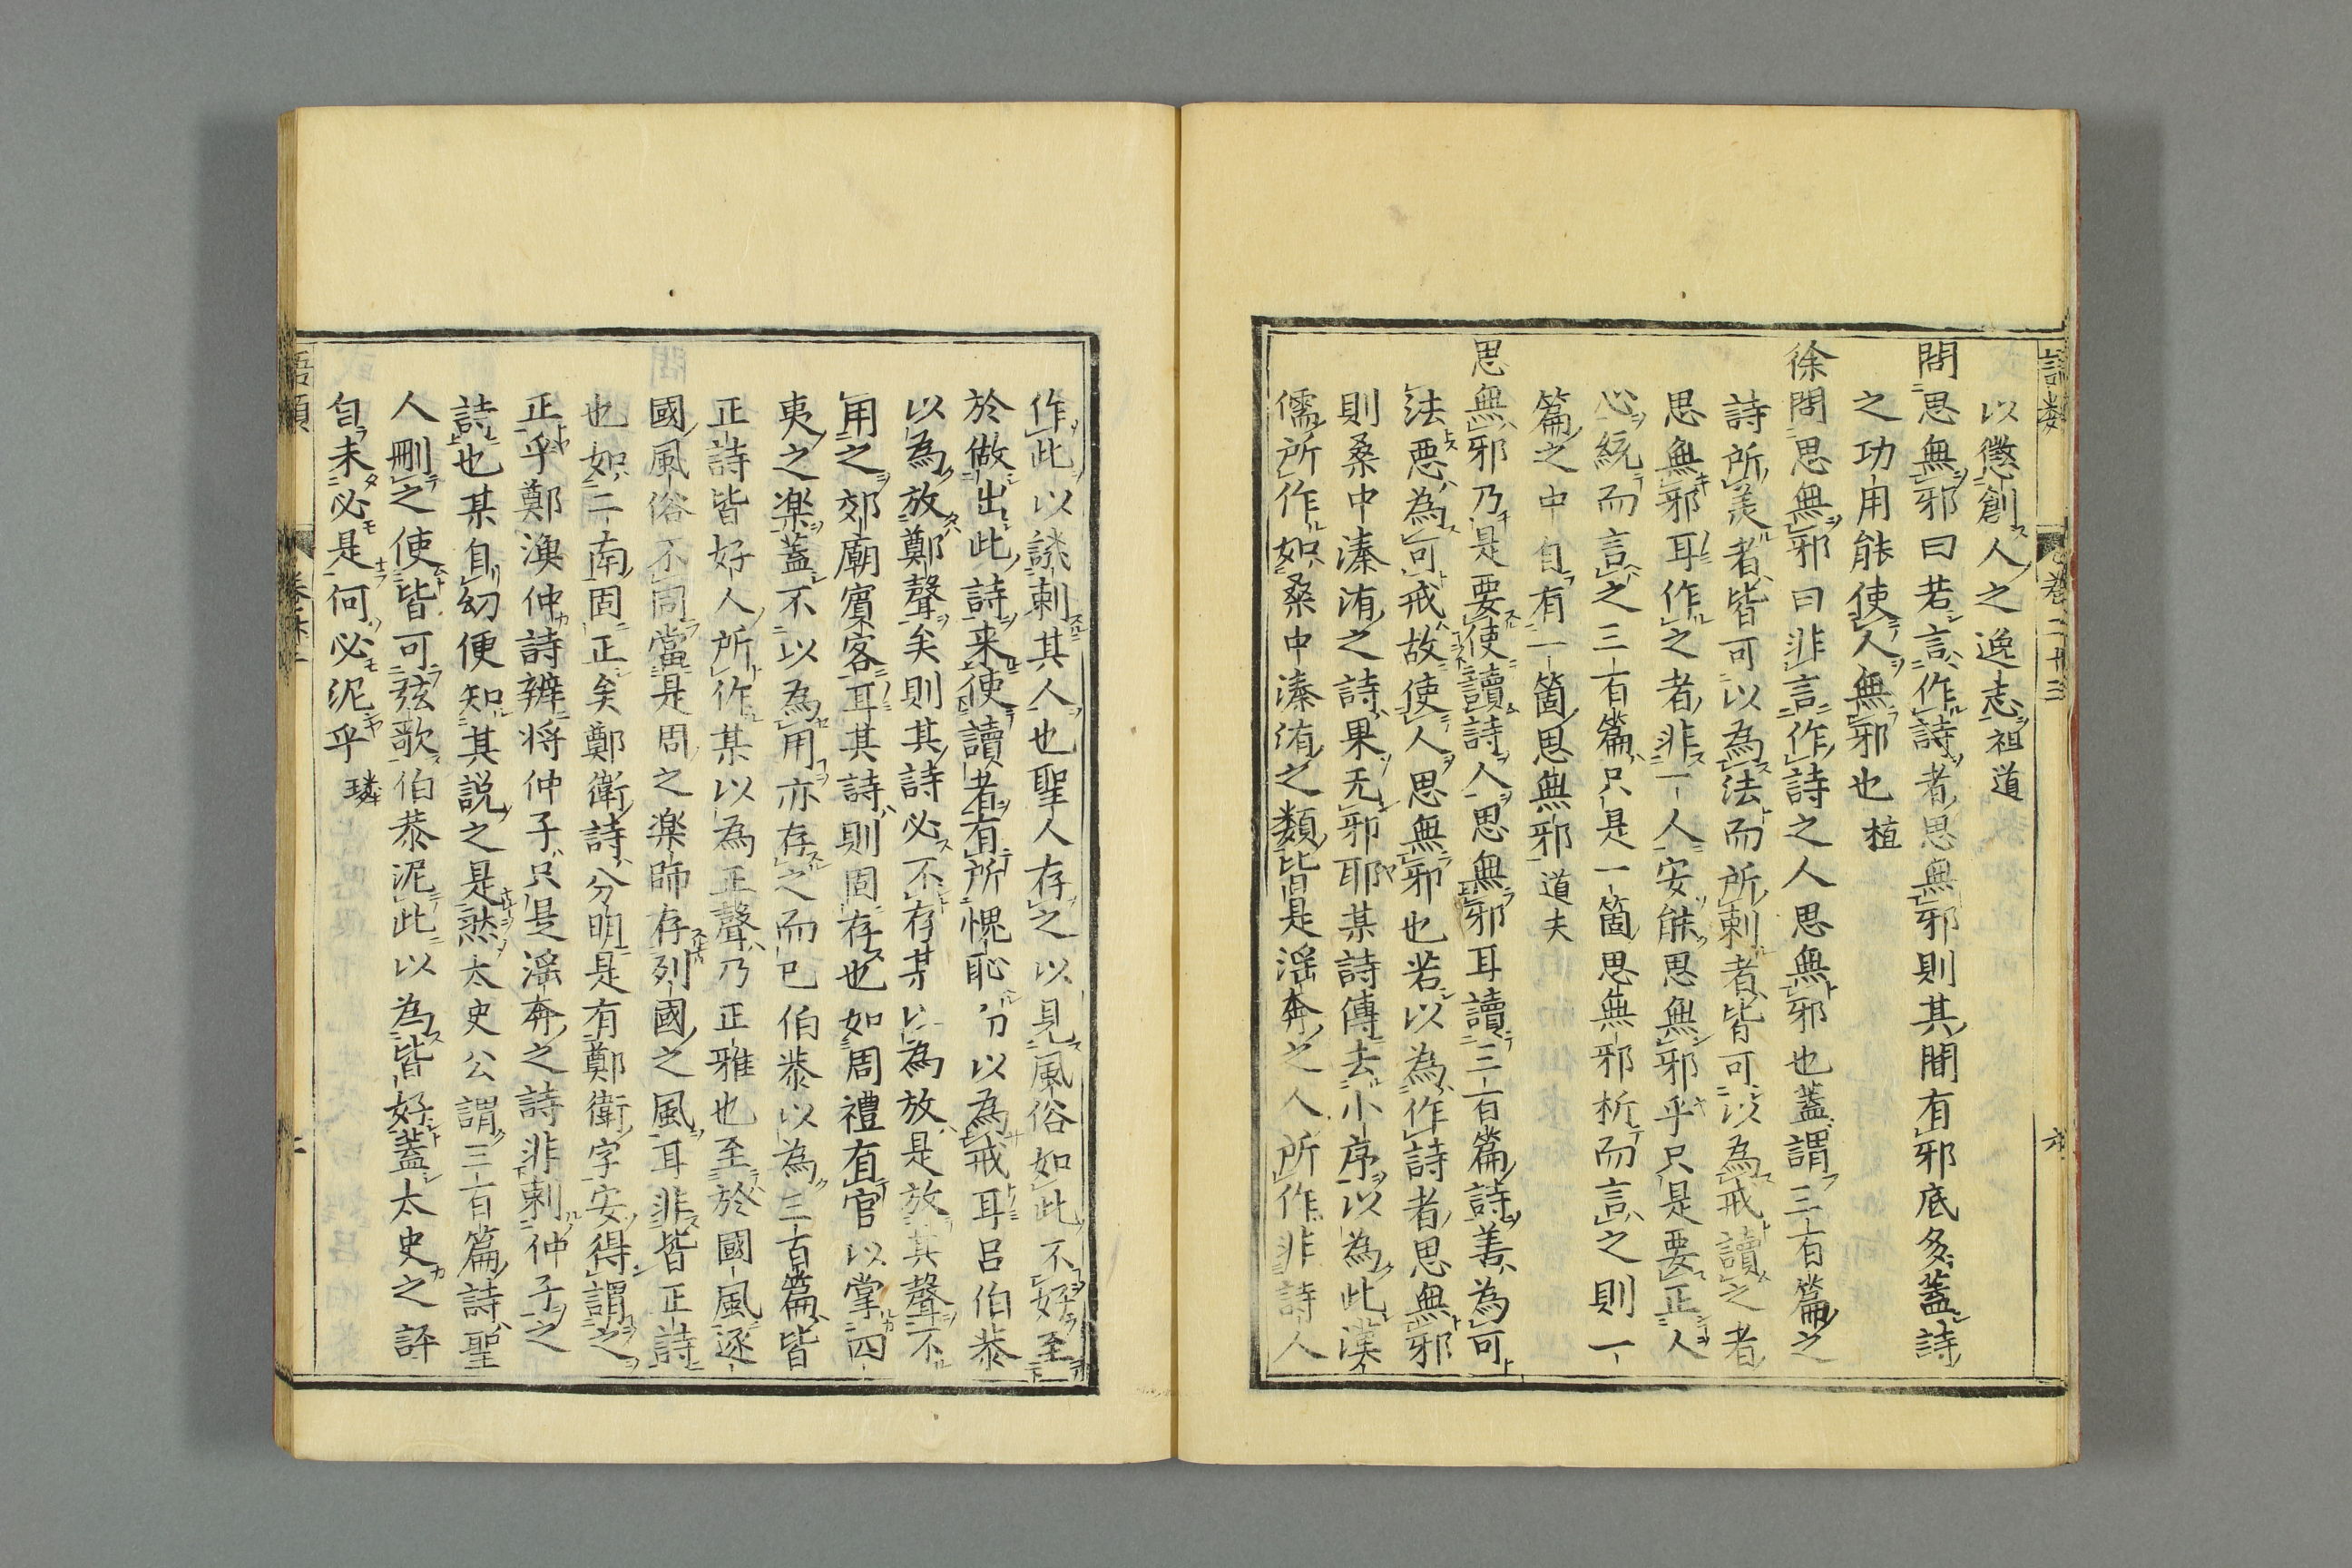 以懲創人之逸志祖道
問思無邪曰若言作詩者思無邪則其間有邪底多蓋詩
之功用能使人無邪也植
徐問思無邪曰非言作詩之人思無邪也蓋謂三百篇之
詩所美者皆可以為法而所刺者皆可以為戒讀之者
思無邪耳作之者非一人安能思無邪乎只是要正人
心統而言之三百篇只是一箇思無邪析而言之則一
篇之中自有一箇思無邪道夫
思無邪乃是要使讀詩人思無邪耳讀三百篇詩善為可
法惡為可戒故使人思無邪也若以為作詩者思無邪
則桑中溱洧之詩果无邪耶某詩傳去小序以為此漢
儒所作如桑中溱洧之類皆是滛奔之人所作非詩人
作此以譏刺其人也聖人存之以見風俗如此不好至
於做出此詩来使讀者有所愧恥而以為戒耳呂伯恭
以為放鄭聲矣則其詩必不存某以為放是放其聲不
用之郊廟賓客耳其詩則固存也如周禮有官以掌四
夷之楽蓋不以為用亦存之而已伯恭以為三百篇皆
正詩皆好人所作某以為正聲乃正雅也至於國風逐
國風俗不同當是周之楽師存列國之風耳非皆正詩
也如二南固正矣鄭衛詩分明是有鄭衛字安得謂之
正乎鄭漁仲詩辨将仲子只是滛奔之詩非刺仲子之
詩也某自幼便知其説之是然太史公謂三百篇詩聖
人刪之使皆可弦歌伯恭泥此以為皆好蓋太史之評
自未必是何必泥乎璘